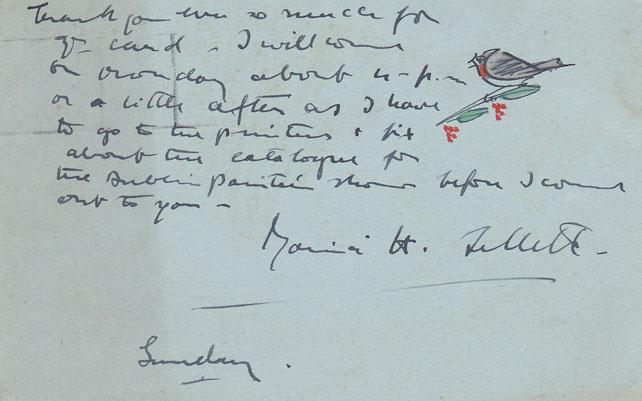 Thank you ever so much for
yr card - I will come
on Monday about 4-p.m
or a little after as I have
to go to the printers & fix
about the catalogue for
the Dublin Painters' show before I come
out to you -
Mainie H. Jellett -
Sunday.